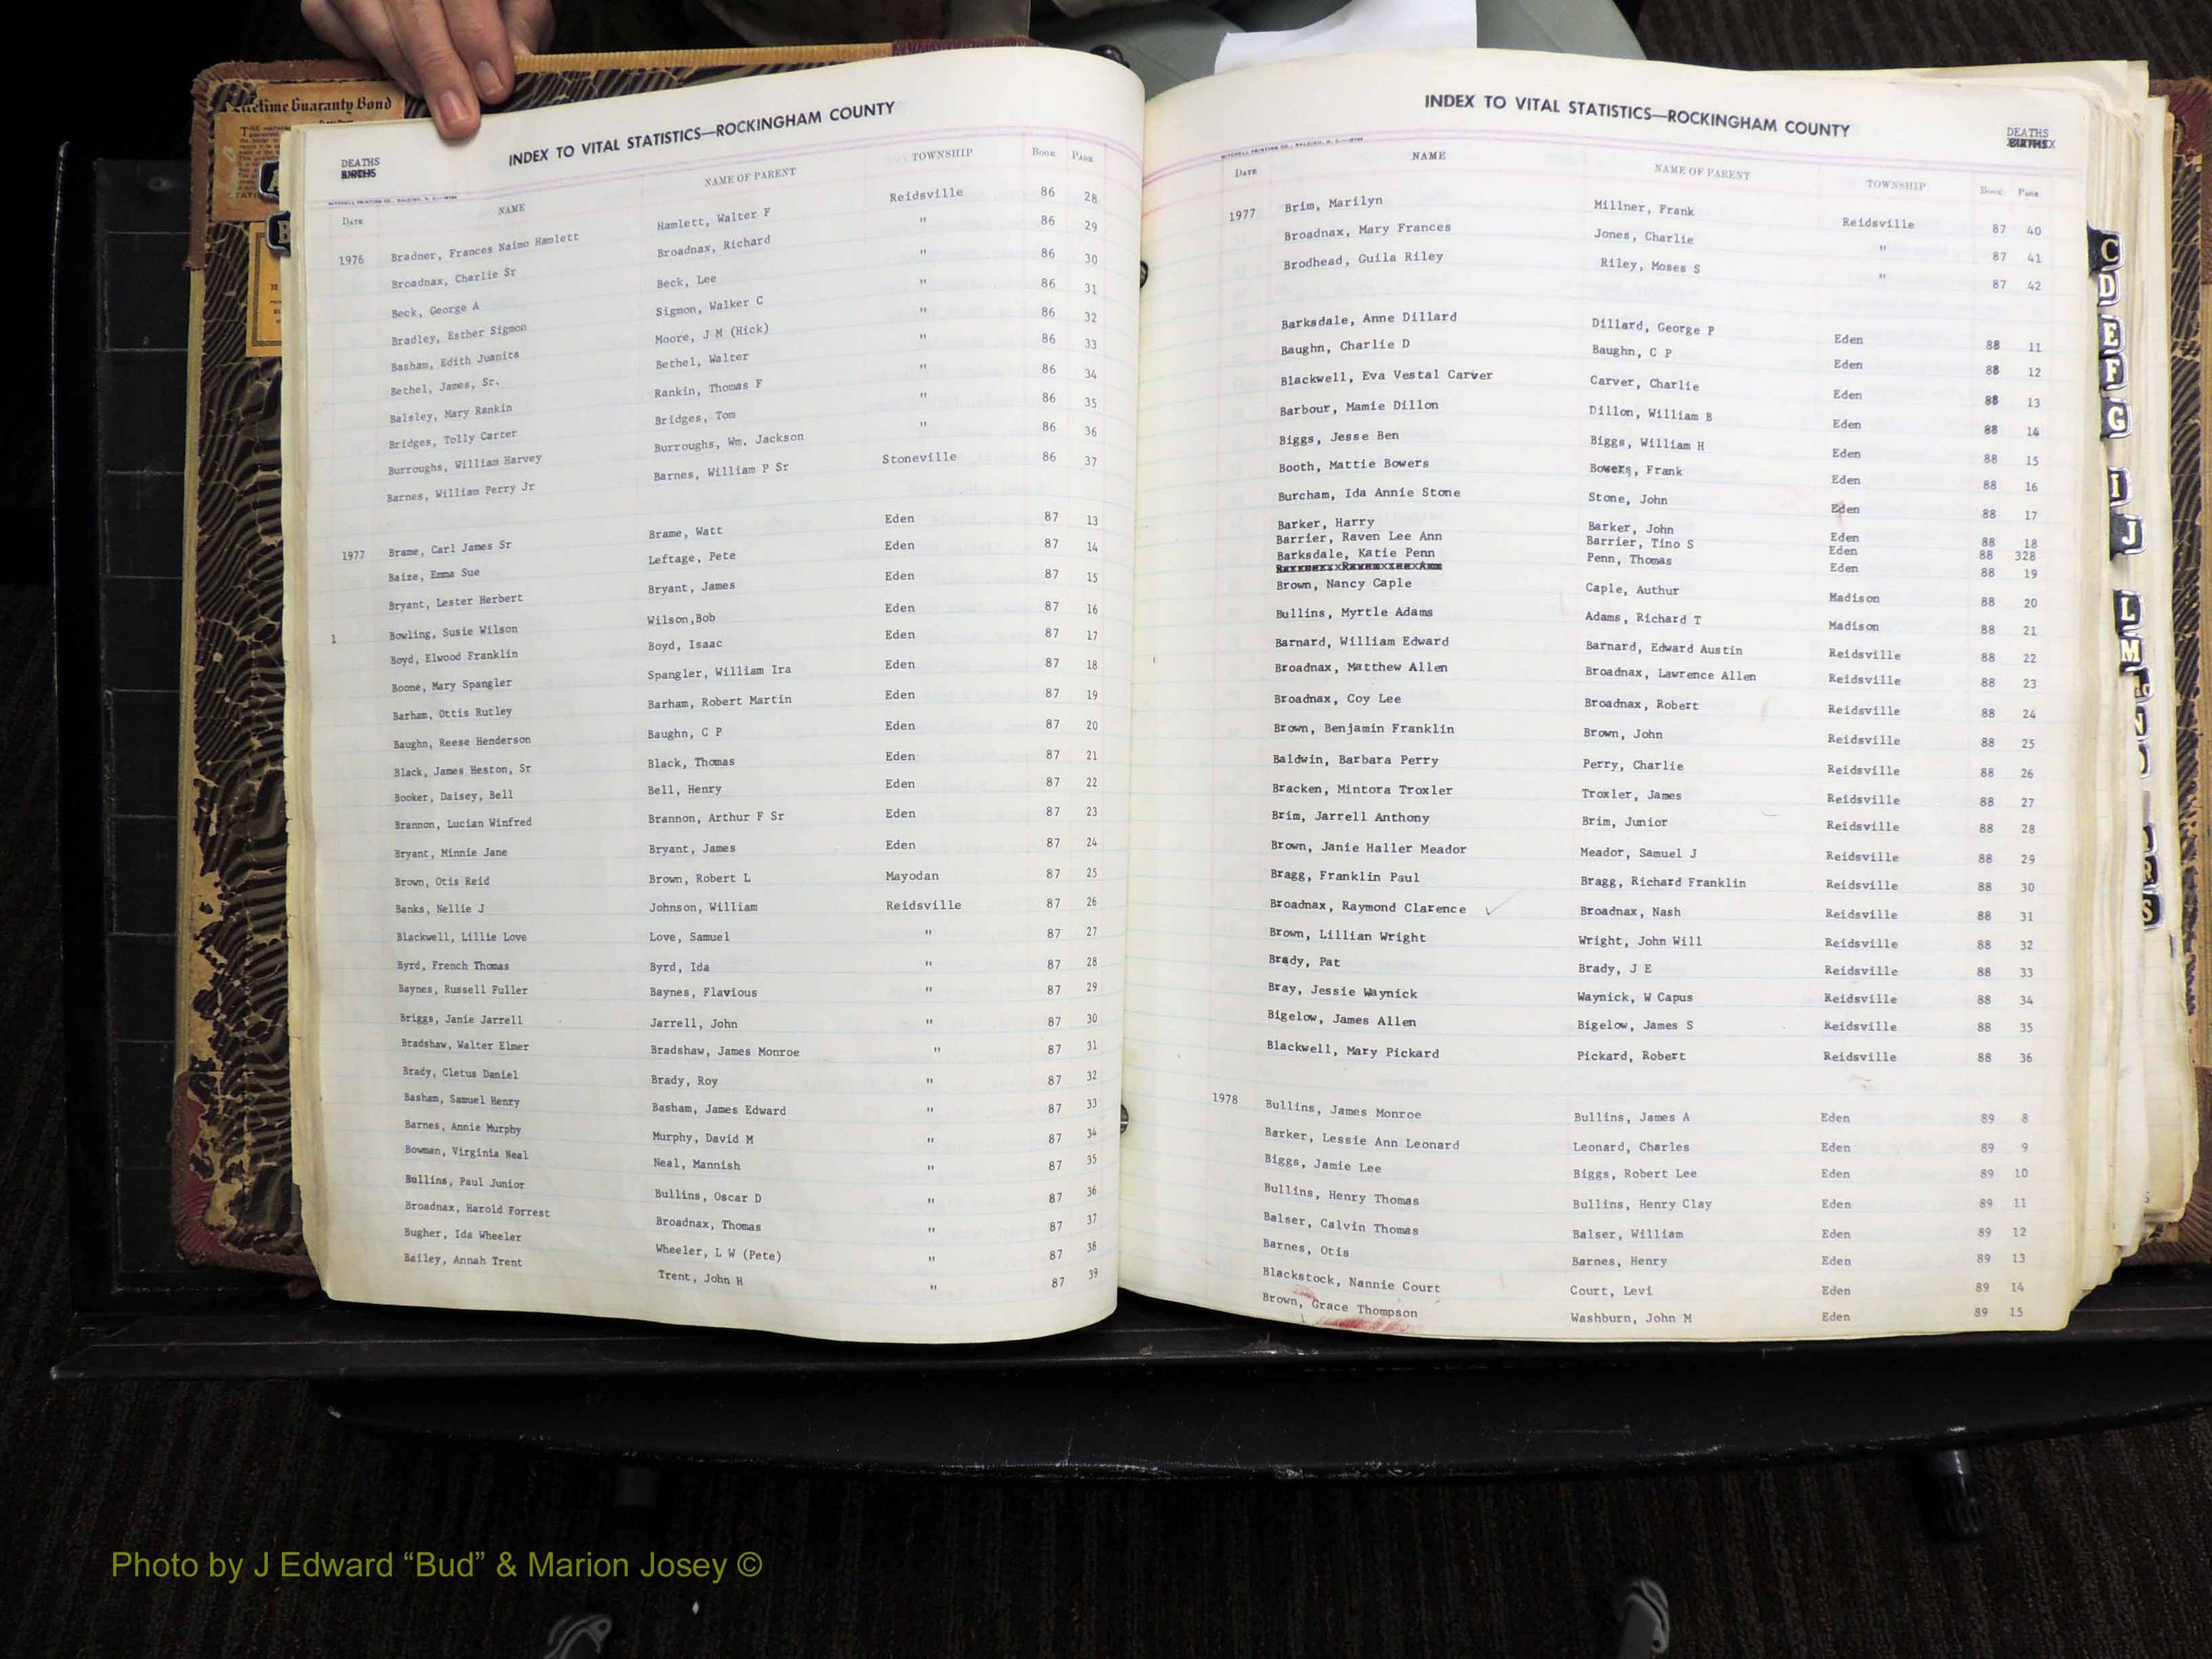 Lifetime Guaranty Bond
INDEX TO VITAL STATISTICS—ROCKINGHAM COUNTY
DEATHS
BIRTHS
MITCHELL PRINTING CO., RALEIGH, N. C.
DATE NAME NAME OF PARENT TOWNSHIP BOOK PAGE
1976 Bradner, Frances Naimo Hamlett Hamlett, Walter F Reidsville 86 28
Broadnax, Charlie Sr Broadnax, Richard " 86 29
Beck, George A Beck, Lee " 86 30
Bradley, Esther Sigmon Sigmon, Walker C " 86 31
Basham, Edith Juanita Moore, J M (Hick) " 86 32
Bethel, James, Sr. Bethel, Walter " 86 33
Balsley, Mary Rankin Rankin, Thomas F " 86 34
Bridges, Tolly Carter Bridges, Tom " 86 35
Burroughs, William Harvey Burroughs, Wm. Jackson " 86 36
Barnes, William Perry Jr Barnes, William P Sr Stoneville 86 37
1977 Brame, Carl James Sr Brame, Watt Eden 87 13
Baize, Emma Sue Leftage, Pete Eden 87 14
Bryant, Lester Herbert Bryant, James Eden 87 15
1 Bowling, Susie Wilson Wilson,Bob Eden 87 16
Boyd, Elwood Franklin Boyd, Isaac Eden 87 17
Boone, Mary Spangler Spangler, William Ira Eden 87 18
Barham, Ottis Rutley Barham, Robert Martin Eden 87 19
Baughn, Reese Henderson Baughn, C P Eden 87 20
Black, James Heston, Sr Black, Thomas Eden 87 21
Booker, Daisey, Bell Bell, Henry Eden 87 22
Brannon, Lucian Winfred Brannon, Arthur F Sr Eden 87 23
Bryant, Minnie Jane Bryant, James Eden 87 24
Brown, Otis Reid Brown, Robert L Mayodan 87 25
Banks, Nellie J Johnson, William Reidsville 87 26
Blackwell, Lillie Love Love, Samuel " 87 27
Byrd, French Thomas Byrd, Ida " 87 28
Baynes, Russell Fuller Baynes, Flavious " 87 29
Briggs, Janie Jarrell Jarrell, John " 87 30
Bradshaw, Walter Elmer Bradshaw, James Monroe " 87 31
Brady, Cletus Daniel Brady, Roy " 87 32
Basham, Samuel Henry Basham, James Edward " 87 33
Barnes, Annie Murphy Murphy, David M " 87 34
Bowman, Virginia Neal Neal, Mannish " 87 35
Bullins, Paul Junior Bullins, Oscar D " 87 36
Broadnax, Harold Forrest Broadnax, Thomas " 87 37
Bugher, Ida Wheeler Wheeler, L W (Pete) " 87 38
Bailey, Annah Trent Trent, John H " 87 39
INDEX TO VITAL STATISTICS—ROCKINGHAM COUNTY
DEATHS
BIRTHS
MITCHELL PRINTING CO., RALEIGH, N. C.
DATE NAME NAME OF PARENT TOWNSHIP BOOK PAGE
1977 Brim, Marilyn Millner, Frank Reidsville 87 40
Broadnax, Mary Frances Jones, Charlie " 87 41
Brodhead, Guila Riley Riley, Moses S " 87 42
Barksdale, Anne Dillard Dillard, George P Eden 88 11
Baughn, Charlie D Baughn, C P Eden 88 12
Blackwell, Eva Vestal Carver Carver, Charlie Eden 88 13
Barbour, Mamie Dillon Dillon, William B Eden 88 14
Biggs, Jesse Ben Biggs, William H Eden 88 15
Booth, Mattie Bowers Bowers, Frank Eden 88 16
Burcham, Ida Annie Stone Stone, John Eden 88 17
Barker, Harry Barker, John Eden 88 18
Barrier, Raven Lee Ann Barrier, Tino S Eden 88 328
Barksdale, Katie Penn Penn, Thomas Eden 88 19
Brown, Nancy Caple Caple, Authur Madison 88 20
Bullins, Myrtle Adams Adams, Richard T Madison 88 21
Barnard, William Edward Barnard, Edward Austin Reidsville 88 22
Broadnax, Matthew Allen Broadnax, Lawrence Allen Reidsville 88 23
Broadnax, Coy Lee Broadnax, Robert Reidsville 88 24
Brown, Benjamin Franklin Brown, John Reidsville 88 25
Baldwin, Barbara Perry Perry, Charlie Reidsville 88 26
Bracken, Mintora Troxler Troxler, James Reidsville 88 27
Brim, Jarrell Anthony Brim, Junior Reidsville 88 28
Brown, Janie Haller Meador Meador, Samuel J Reidsville 88 29
Bragg, Franklin Paul Bragg, Richard Franklin Reidsville 88 30
Broadnax, Raymond Clarence ✓ Broadnax, Nash Reidsville 88 31
Brown, Lillian Wright Wright, John Will Reidsville 88 32
Brady, Pat Brady, J E Reidsville 88 33
Bray, Jessie Waynick Waynick, W Capus Reidsville 88 34
Bigelow, James Allen Bigelow, James S Reidsville 88 35
Blackwell, Mary Pickard Pickard, Robert Reidsville 88 36
1978 Bullins, James Monroe Bullins, James A Eden 89 8
Barker, Lessie Ann Leonard Leonard, Charles Eden 89 9
Biggs, Jamie Lee Biggs, Robert Lee Eden 89 10
Bullins, Henry Thomas Bullins, Henry Clay Eden 89 11
Balser, Calvin Thomas Balser, William Eden 89 12
Barnes, Otis Barnes, Henry Eden 89 13
Blackstock, Nannie Court Court, Levi Eden 89 14
Brown, Grace Thompson Washburn, John M Eden 89 15
C
D
E
F
G
I
J
L
M
S
Photo by J Edward “Bud” & Marion Josey ©